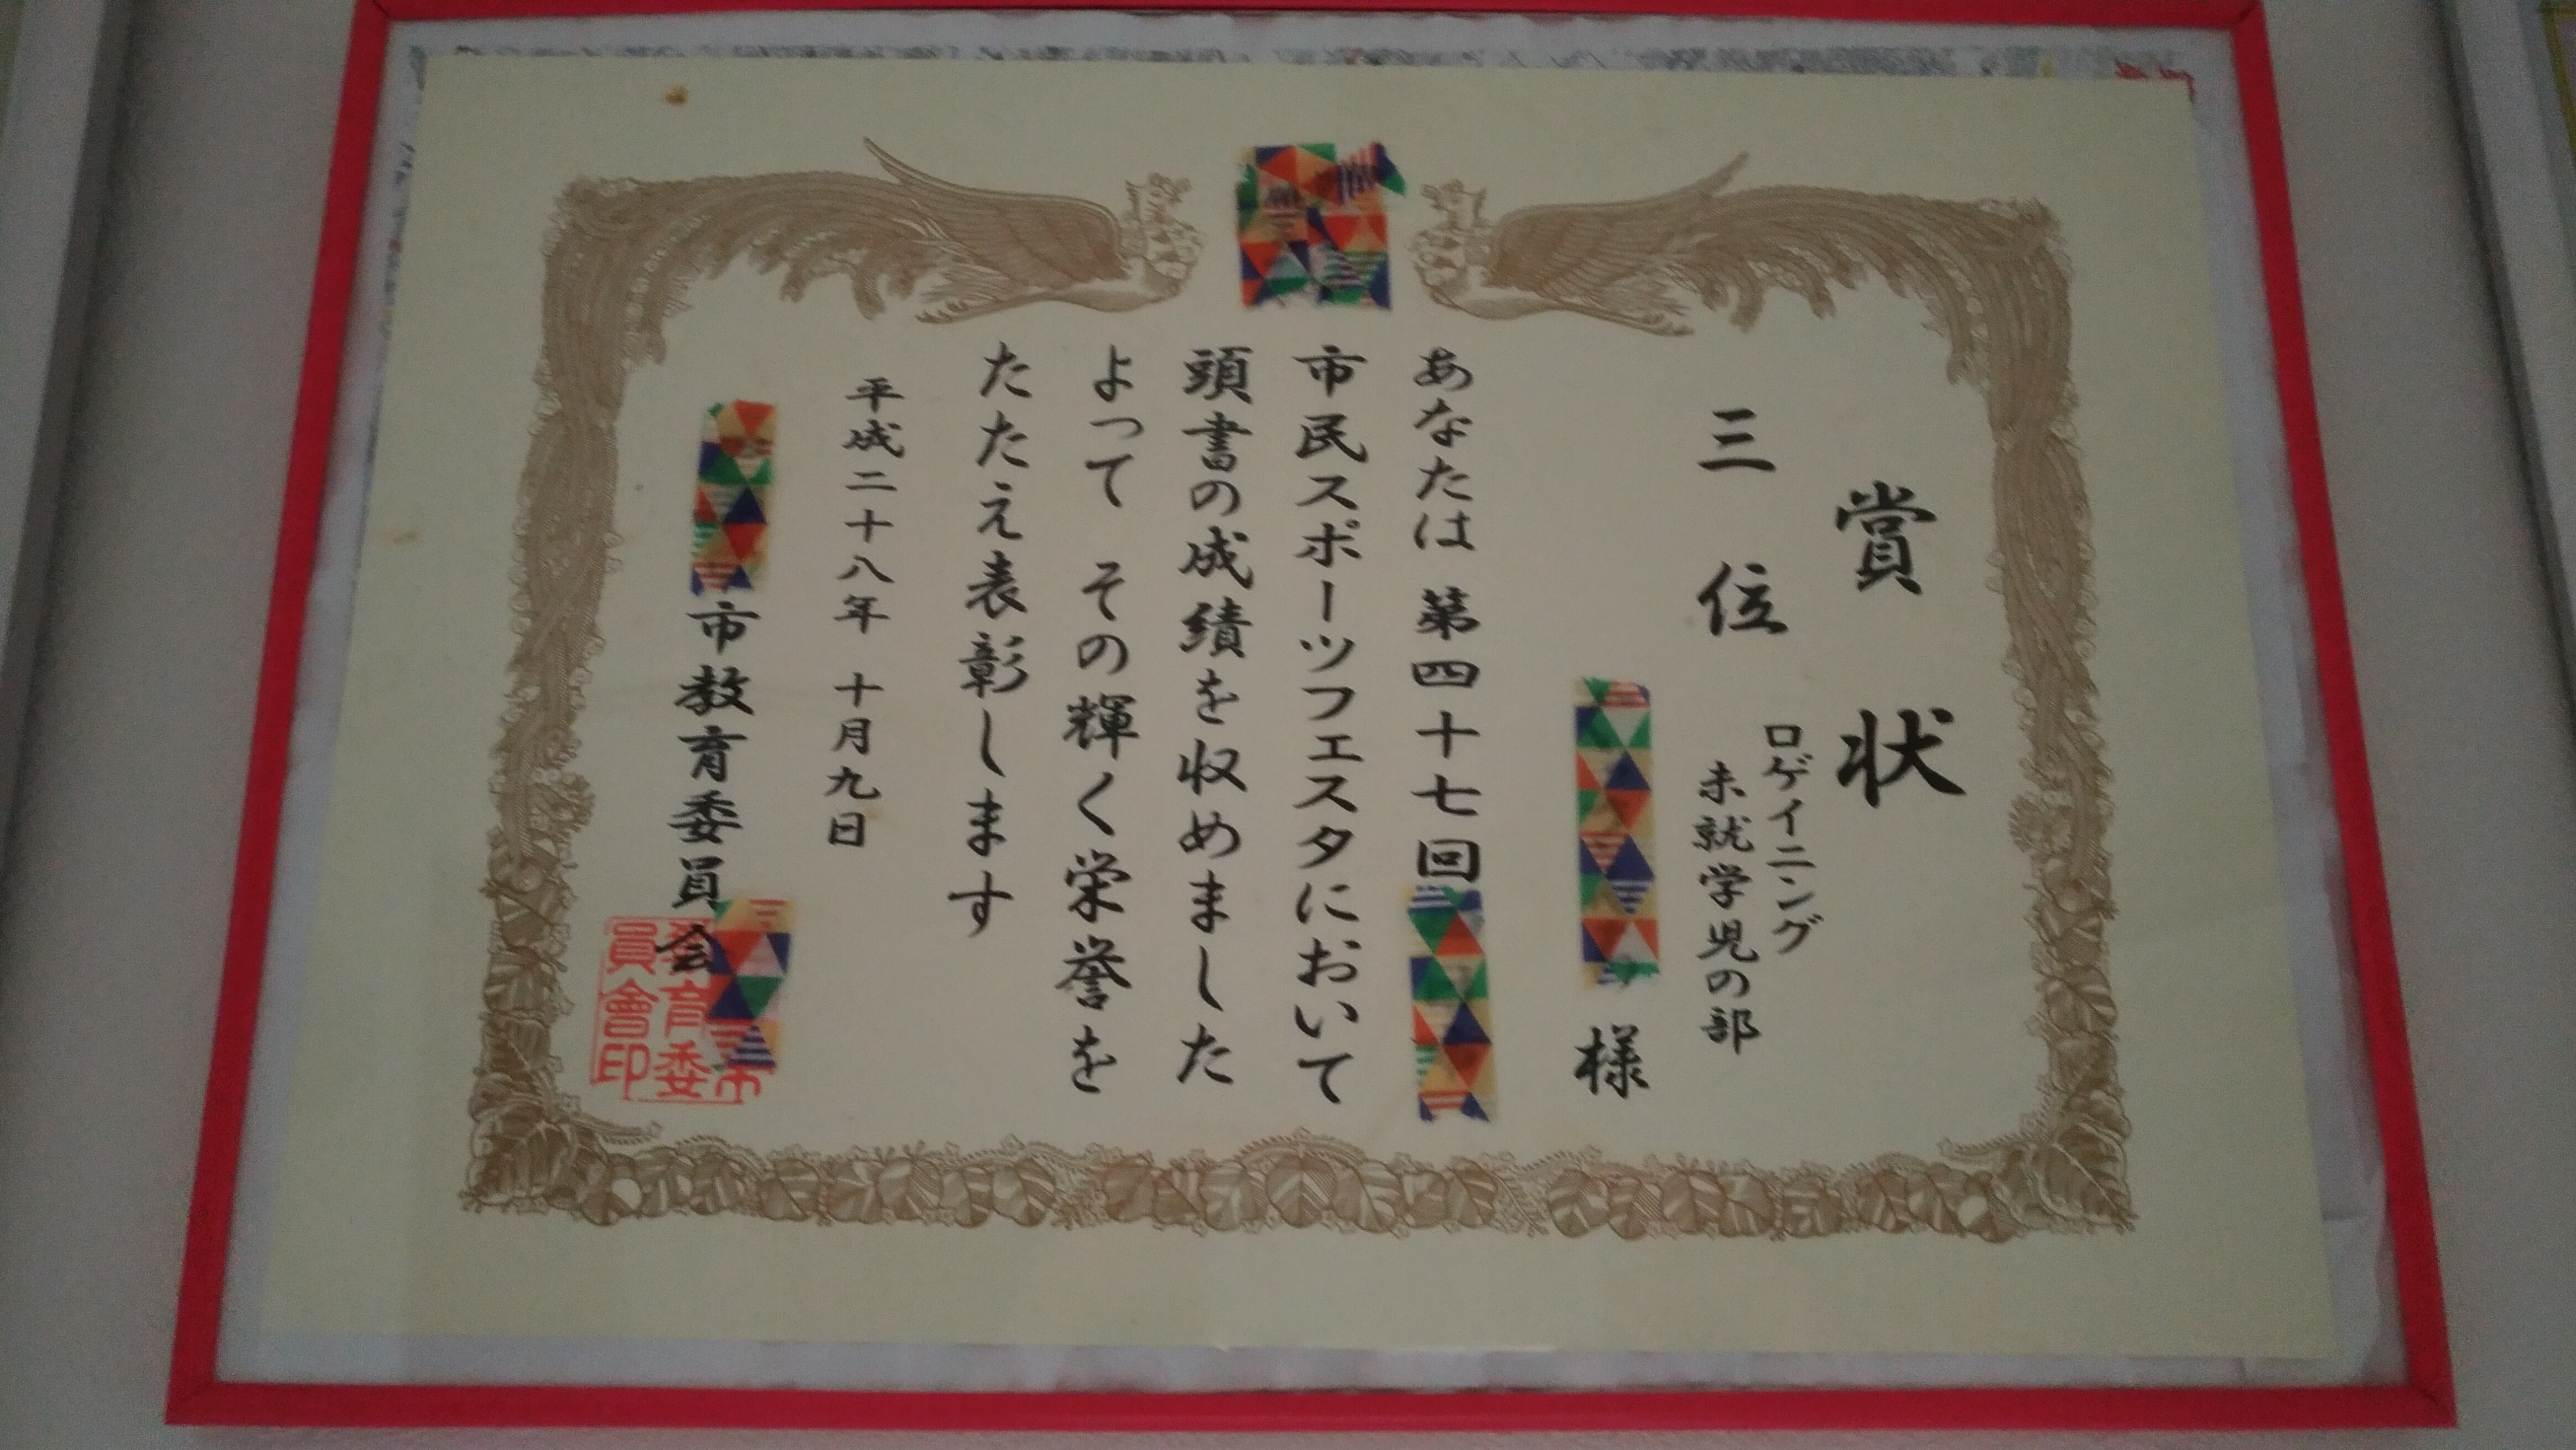 賞状
三位
ロゲイニング
未就学児の部
様
あなたは 第四十七回
市民スポーツフェスタにおいて
頭書の成績を収めました
よって その輝く栄誉を
たたえ表彰します
平成二十八年 十月九日
市教育委員会
市
育委
員會印